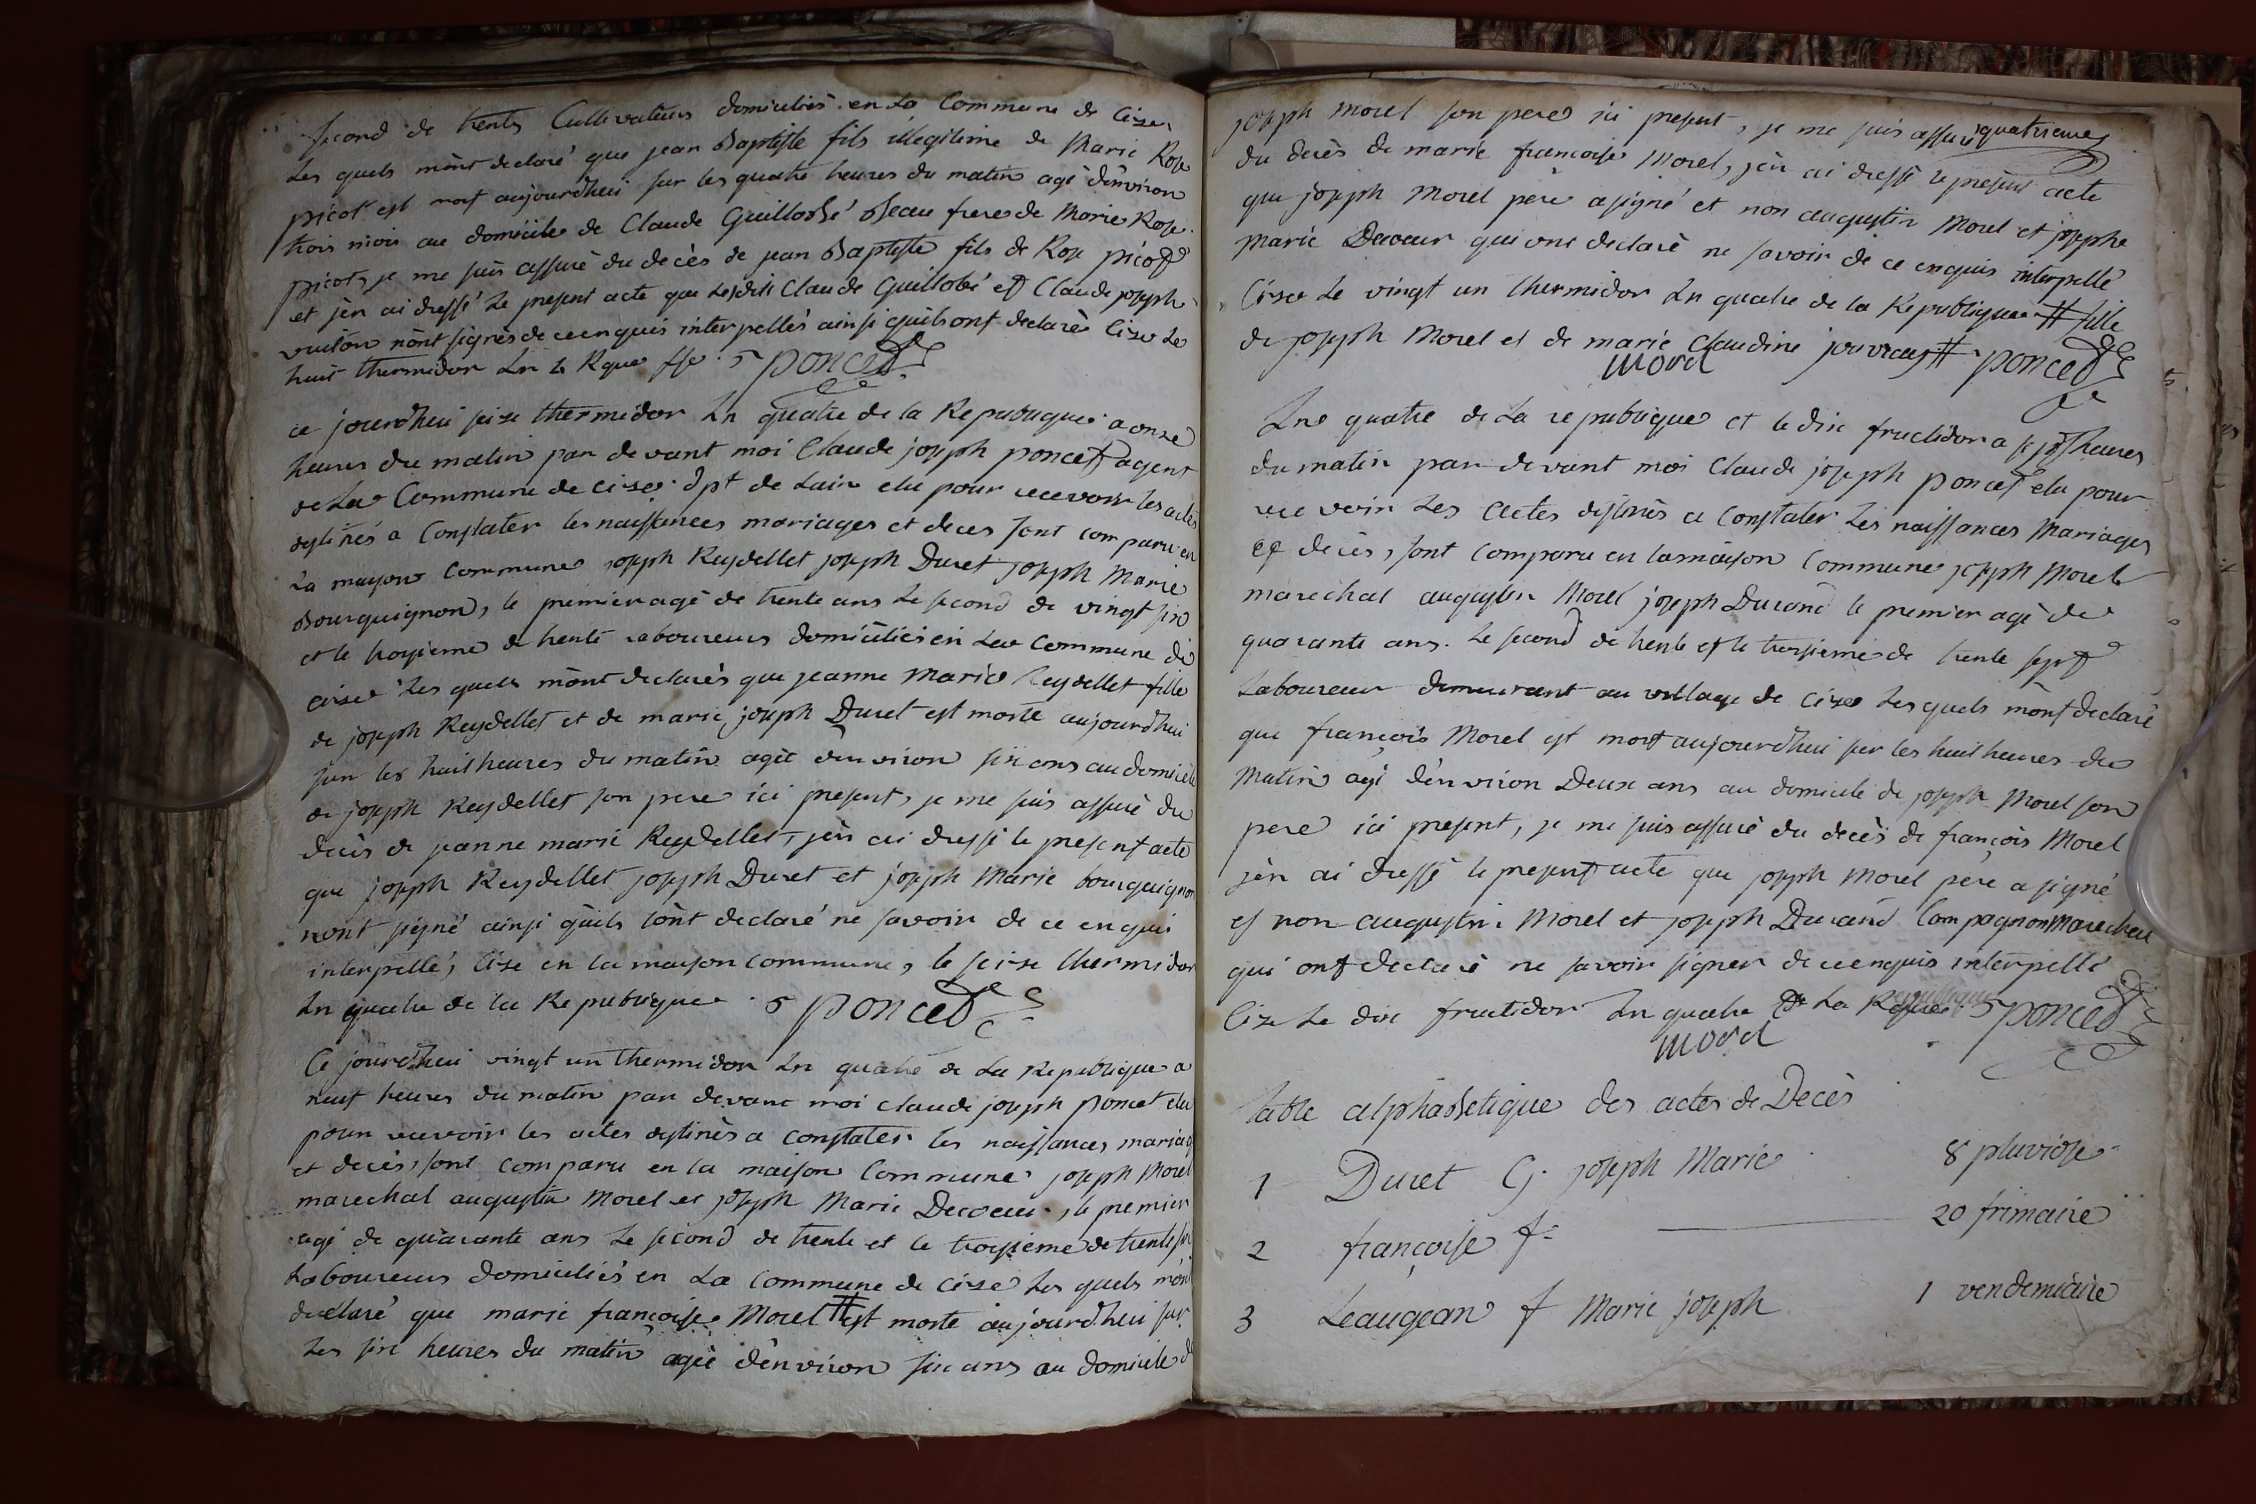 second de trente Cultivateurs domiciliés en la Commune de Cize,
Les quels m'ont declaré que jean Baptiste fils illegitime de Marie Rose
picot est mort aujourdhui sur les quatre heures du matin agé d'environ
trois mois au domicile de Claude Guillobé beau frere de Marie Rose
picot, je me suis assuré du decès de jean Baptiste fils de Rose picot
et j'en ai dressé le present acte que lesdits Claude Guillobé et Claude joseph
n'ont signés de ce enquis interpellés ainsi quils ont declaré Cize Le
huit thermidor Ln 4 Rque ffe. poncet
ce jourdhui seize thermidor Ln quatre de la Republique a onze
heures du matin par devant moi Claude joseph poncet agent
de La Commune de cize dpt de Lain elu pour recevoir les actes
destinés a Constater les naissances mariages et deces sont comparu en
La mayson Commune joseph Reydellet joseph Duret joseph Marie
Bourguignon, le premier agé de trente ans Le second de vingt six
et le troysieme de trente laboureurs domiciliés en La commune de
cize Les quels m'ont declarés que jeanne Marie Reydellet fille
de joseph Reydellet et de marie joseph Duret est morte aujourdhui
sur les huit heures du matin agée d'environ six ans au domicile
de joseph Reydellet son pere ici present, je me suis assuré du
decès de jeanne marie Reydellet, j'en ai dressé le present acte
que joseph Reydellet joseph Duret et joseph Marie bourguignon
n'ont signé ainsi qu'ils l'ont declaré ne savoir de ce enquis
interpellé, Cize en la maison commune, le seize thermidor
Ln quatre de la Republique poncet
Ce jourdhui vingt un thermidor Ln quatre de La Republique a
neuf heures du matin par devant moi claude joseph poncet elu
pour recevoir les actes destinés a constater les naissances mariag
et decès, sont comparu en la maison Commune joseph Morel
marechal augustin Morel et joseph Marie Decoeur, le premier
agé de quarante ans Le second de trente et le troysieme de trente six
Laboureurs domiciliés en La commune de cize Les quels m'ont
declaré que marie françoise Morel # est morte aujourdhui sur
Les six heures du matin agée d'environ six ans au domicile de
joseph Morel son pere ici present, je me suis assuré quatrieme
du decès de marie francoise Morel, j'en ai dressé le present acte
que joseph Morel père a signé et non augustin Morel et joseph
Marie Decoeur qui ont declaré ne savoir de ce enquis interpellé
Cize Le vingt un thermidor Ln quatre de la Republique # fille
de joseph Morel et de marie Claudine # poncet
morel
Lne quatre de La republique et le dix fructidor a sept heures
du matin par devant moi Claude joseph poncet elu pour
recevoir Les actes destinés a Constater Les naissances Mariages
et decès, sont comparu en la maison Commune joseph Morel
marechal augustin Morel joseph Durand le premier agé de
quarante ans. Le second de trente et le troisieme de trente sept
Laboureur demeurant au village de Cize Les quels m'ont declaré
que françois Morel est mort aujourdhui sur les huit heures du
Matin agé d'environ Deux ans au domicile de joseph Morel son
pere ici present, je me suis assuré du decès de françois Morel
j'en ai dressé le present acte que joseph Morel père a signé
et non augustin Morel et joseph Durand Compagnon Marechal
qui ont declaré ne savoir signer de ce enquis interpellé
Cize Le dix fructidor Ln quatre de La Rque poncet
morel
Table alphabetique des actes de Decès
1 Duret G. joseph Marie 8 pluviose
2 françoise f. 20 frimaire
3 Leaugean f Marie joseph 1 vendemiaire